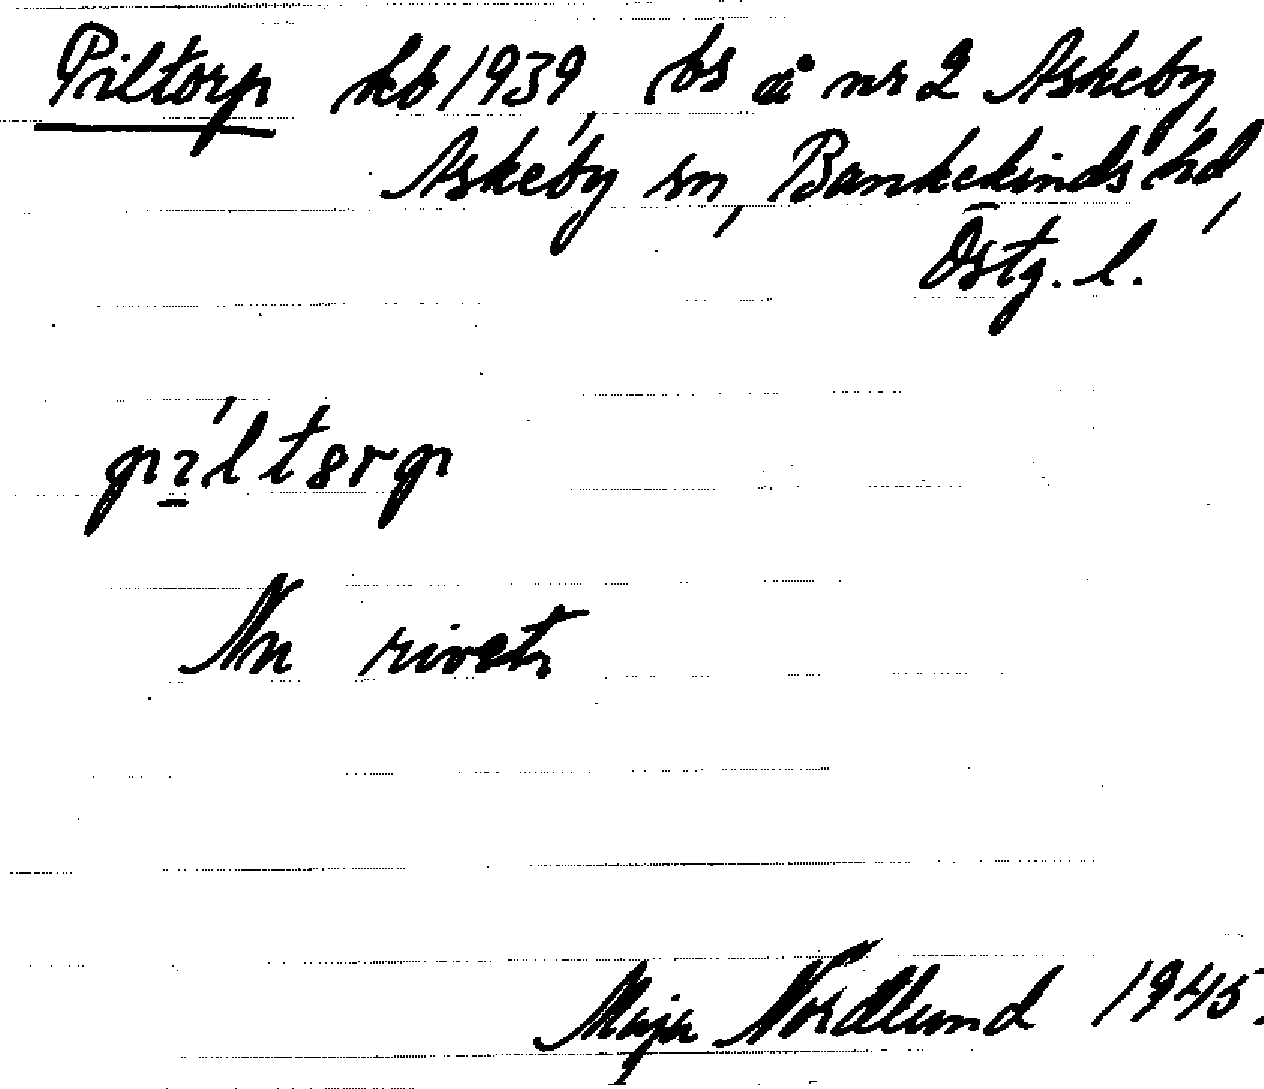 Piltorp kb 1939, bs å nr 2 Askeby,
Askeby sn, Bankekinds hd,
Östg. l.
Nn rivet
Maja Nordlund 1945.